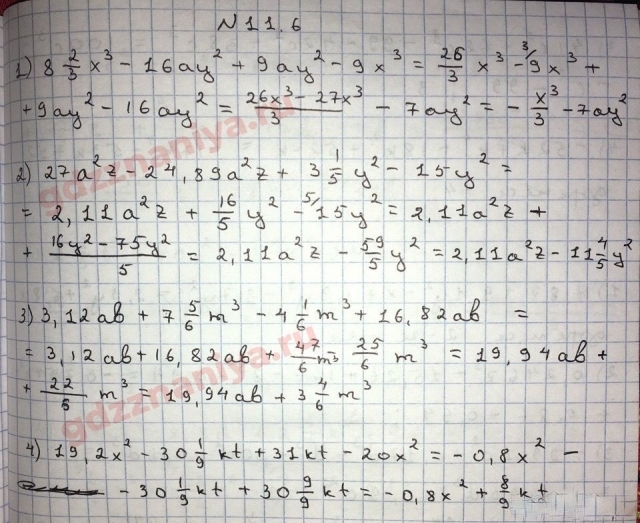 N 11.6
1) 8 2/3 x³ - 16ay² + 9ay² - 9x³ = 26/3 x³ - ³/9x³ +
+ 9ay² - 16ay² = (26x³ - 27x³)/3 - 7ay² = - x³/3 - 7ay²
2) 27a²z - 24,89a²z + 3 1/5 y² - 15y² =
= 2,11a²z + 16/5 y² - ⁵/15y² = 2,11a²z +
+ (16y² - 75y²)/5 = 2,11a²z - 59/5 y² = 2,11a²z - 11 4/5 y²
3) 3,12ab + 7 5/6 m³ - 4 1/6 m³ + 16,82ab =
= 3,12ab + 16,82ab + 47/6 m³ - 25/6 m³ = 19,94ab +
+ 22/6 m³ = 19,94ab + 3 4/6 m³
4) 19,2x² - 30 1/9 kt + 31kt - 20x² = -0,8x² -
- 30 1/9 kt + 30 9/9 kt = -0,8x² + 8/9 kt
gdzznaniya.ru
gdzznaniya.ru